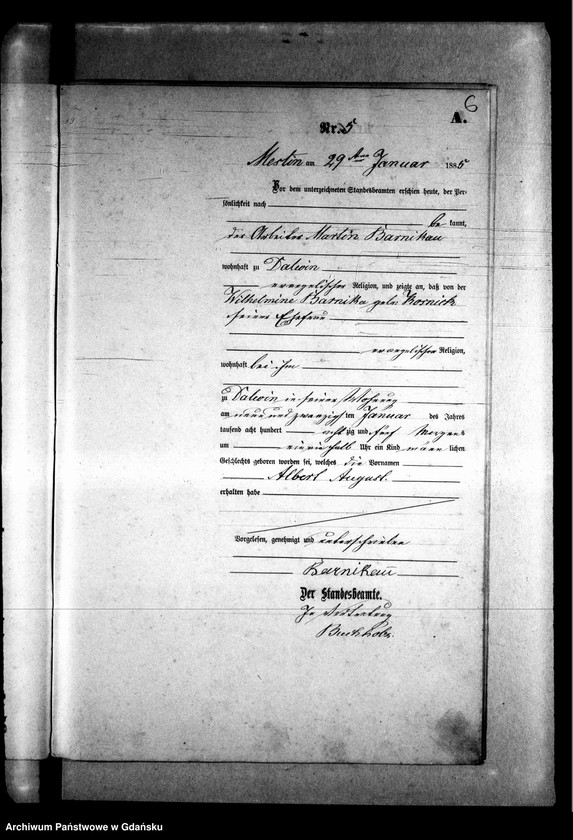 6
A.
Nr. 5
Mestin am 29ten Januar 1885
Vor dem unterzeichneten Standesbeamten erschien heute, der Per-
sönlichkeit nach
be kannt,
der Arbeiter Martin Barnikau
wohnhaft zu Dalwin
evangelischer Religion, und zeigte an, daß von der
Wilhelmine Barnika geb. Kornick
seiner Ehefrau
evangelischer Religion,
wohnhaft bei ihm
zu Dalwin in seiner Wohnung
am neun und zwanzigsten Januar des Jahres
tausend acht hundert achtzig und fünf Morgens
um ein ein halb Uhr ein Kind männ lichen
Geschlechts geboren worden sei, welches die Vornamen
Albert August
erhalten habe
Vorgelesen, genehmigt und unterschrieben
Barnikau
Der Standesbeamte.
In Vertretung
Archiwum Państwowe w Gdańsku